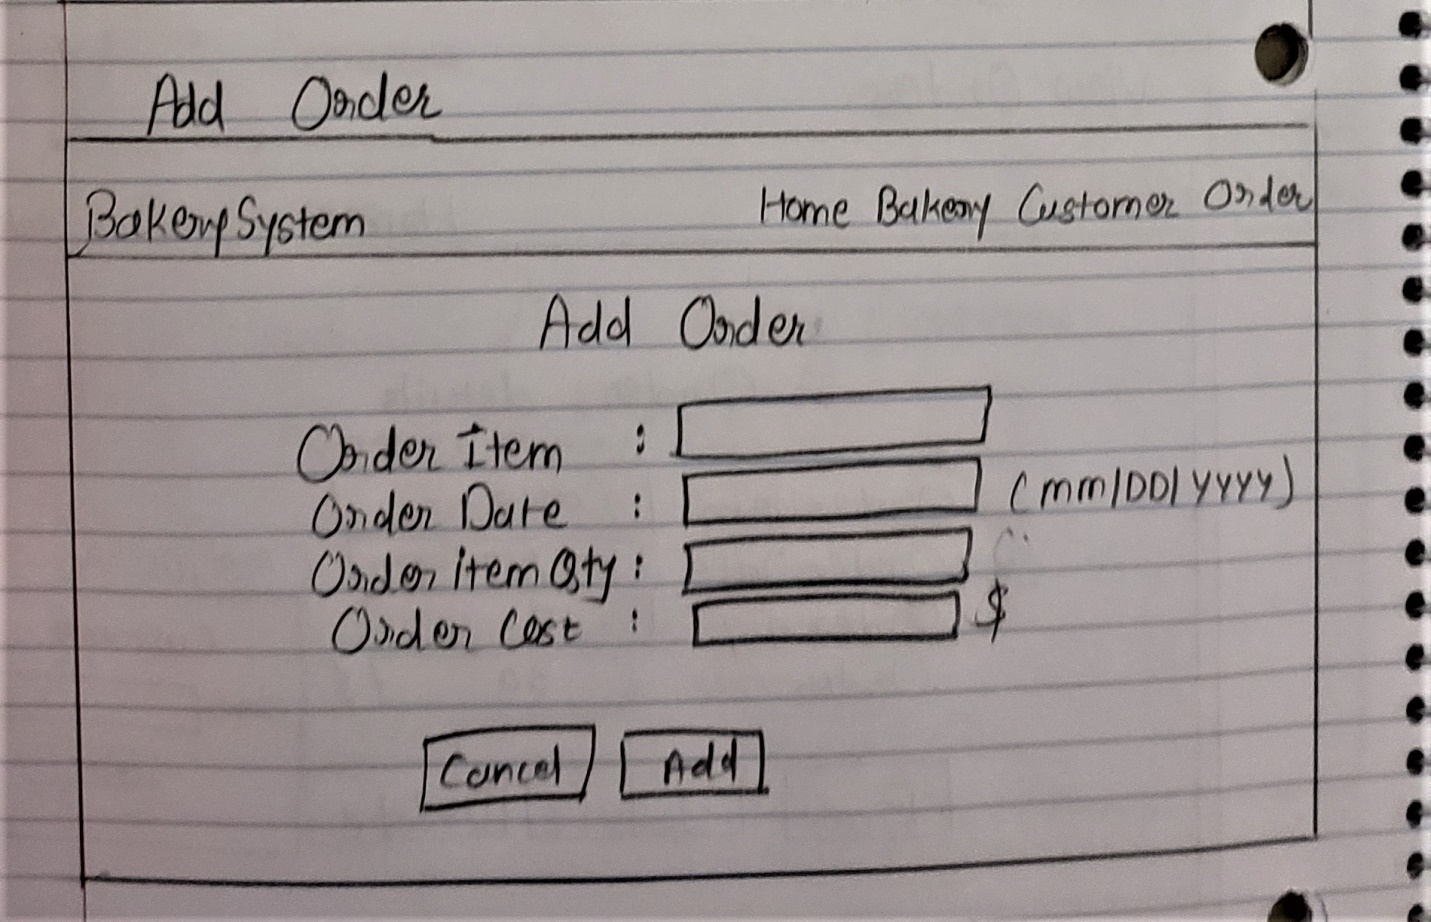 Add Order
BakerySystem
Home Bakery Customer Order
Add Order
Order Item :
Order Date : (mm/DD/YYYY)
Order item Qty :
Order Cost : $
Cancel Add